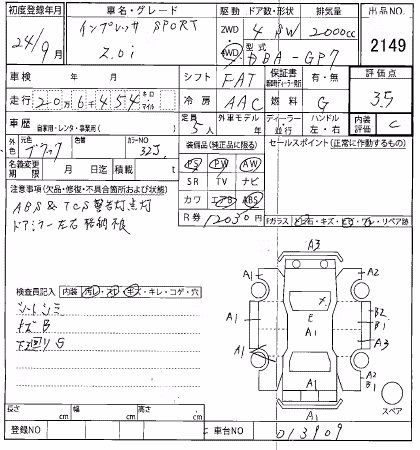 初度登録年月 車名・グレード 駆動 ドア数・形状 排気量 出品NO.
24/9月 インプレッサ SPORT 2WD 4 SW 2000cc
2.0i 4WD 型式 DBA-GP7 2149
車検 年 月 シフト FAT 保証書 有・無 評価点
走行 206454 キロ マイル 冷房 AAC 燃料 G 3.5
車歴 自家用・レンタ・事業用( ) 定員 5人 外車モデル 年 ディーラー・並行 ハンドル 左・右 内装評価 C
外色 元色 ブラック カラーNO 32J 装備品(純正品に限る) セールスポイント(正常に作動するもの)
名義変更期限 月 日迄 積載 t PS PW AW
注意事項(欠品・修復・不具合箇所および状態) SR TV ナビ
ABS & TCS警告灯点灯 カワ エアB ABS
ドアミラー左右格納不良 R券 12030 円 Fガラス トビ石・キズ・ヒビ・ワレ・リペア跡
A3
A1 A2
検査員記入 内装 汚れ・スレ・キズ・キレ・コゲ・穴
シートシミ
キズB
下廻りS
A1 E B2
B1
A3
A1
A2
B1
A1
A1
スペア
長さ cm 幅 cm 高さ cm
登録NO 車台NO 013909